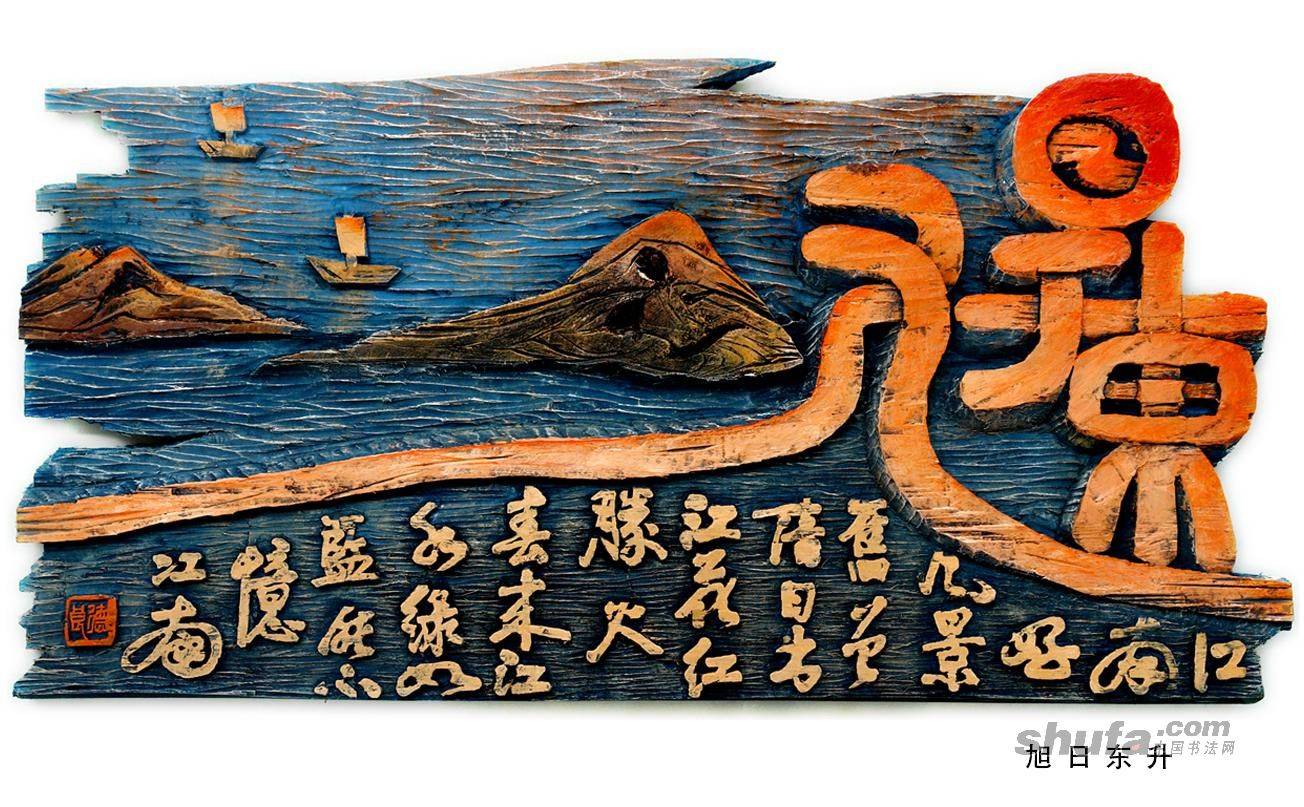 江
南
好
风景
舊曾
諳日出
江花紅
勝火
春来江
水綠如
藍能不
憶
江南
shufa.com
中国书法网
旭日东升